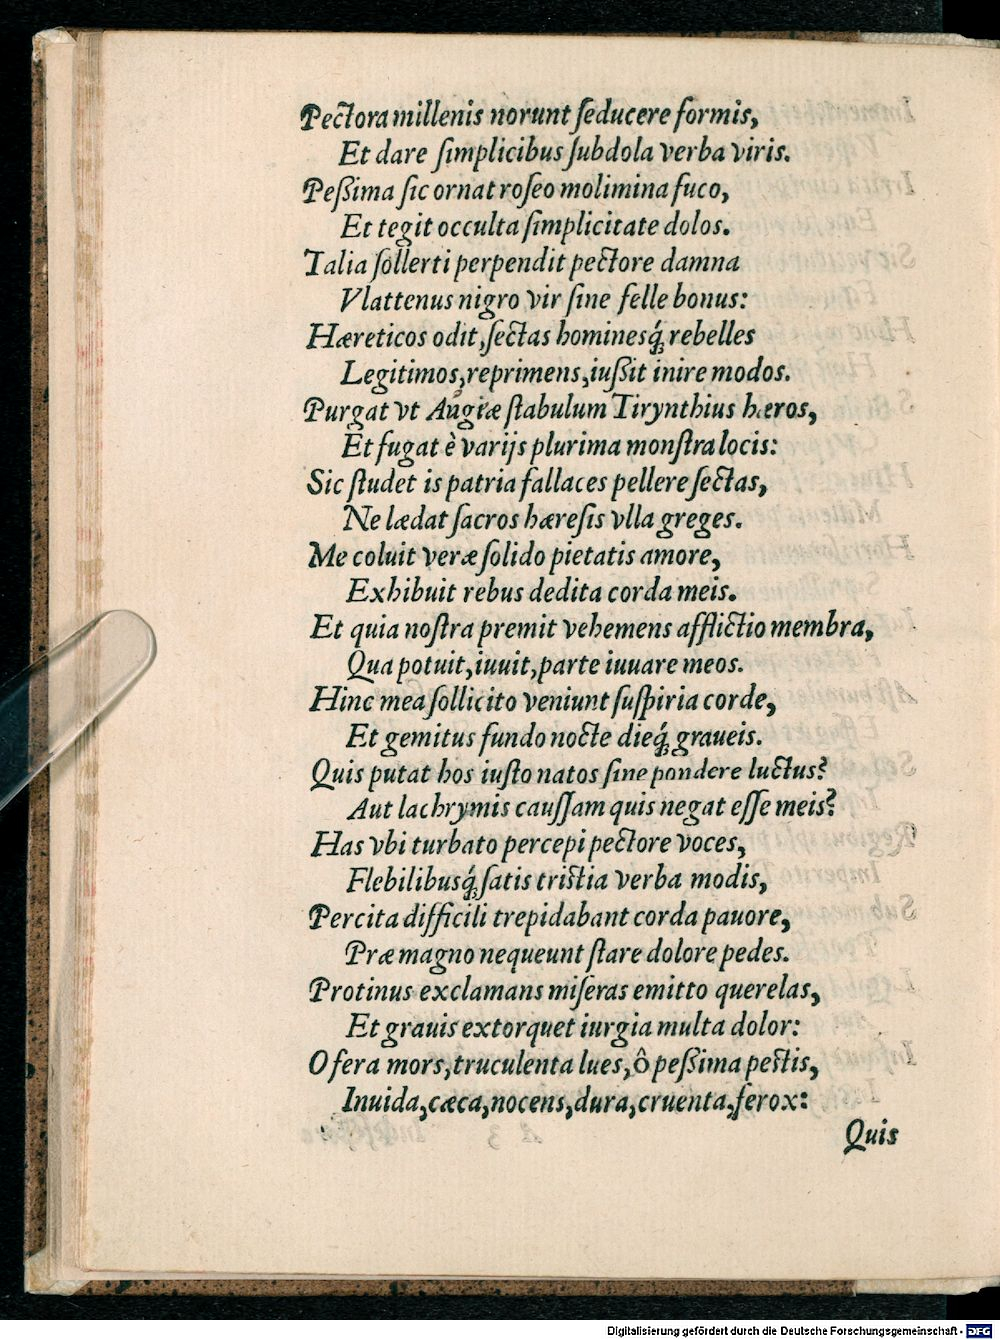 Pectora millenis norunt ſeducere formis,
Et dare ſimplicibus ſubdola verba viris.
Peßima ſic ornat roſeo molimina fuco,
Et tegit occulta ſimplicitate dolos.
Talia ſollerti perpendit pectore damna
Vlattenus nigro vir ſine felle bonus:
Hæreticos odit, ſectas hominesq́ꝫ rebelles
Legitimos, reprimens, iußit inire modos.
Purgat vt Augiæ ſtabulum Tirynthius hæros,
Et fugat è varijs plurima monſtra locis:
Sic ſtudet is patria fallaces pellere ſectas,
Ne lædat ſacros hæreſis vlla greges.
Me coluit veræ ſolido pietatis amore,
Exhibuit rebus dedita corda meis.
Et quia noſtra premit vehemens afflictio membra,
Qua potuit, iuuit, parte iuuare meos.
Hinc mea ſollicito veniunt ſuſpiria corde,
Et gemitus fundo nocte dieq́ꝫ graueis.
Quis putat hos iuſto natos ſine pondere luctus?
Aut lachrymis cauſſam quis negat eſſe meis?
Has vbi turbato percepi pectore voces,
Flebilibusq́ꝫ ſatis triſtia verba modis,
Percita difficili trepidabant corda pauore,
Præ magno nequeunt ſtare dolore pedes.
Protinus exclamans miſeras emitto querelas,
Et grauis extorquet iurgia multa dolor:
O fera mors, truculenta lues, ô peßima peſtis,
Inuida, cæca, nocens, dura, cruenta, ferox:
Quis
Digitalisierung gefördert durch die Deutsche Forschungsgemeinschaft - DFG